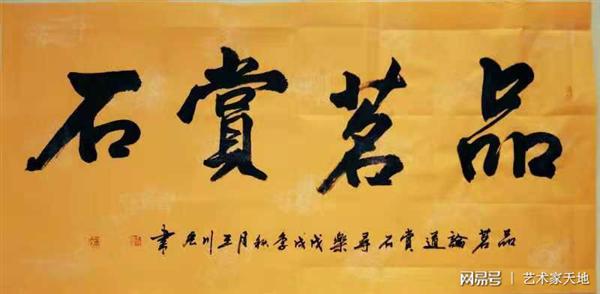 品茗賞石
品茗論道賞石尋樂戊戌季秋月王川書
网易号 | 艺术家天地